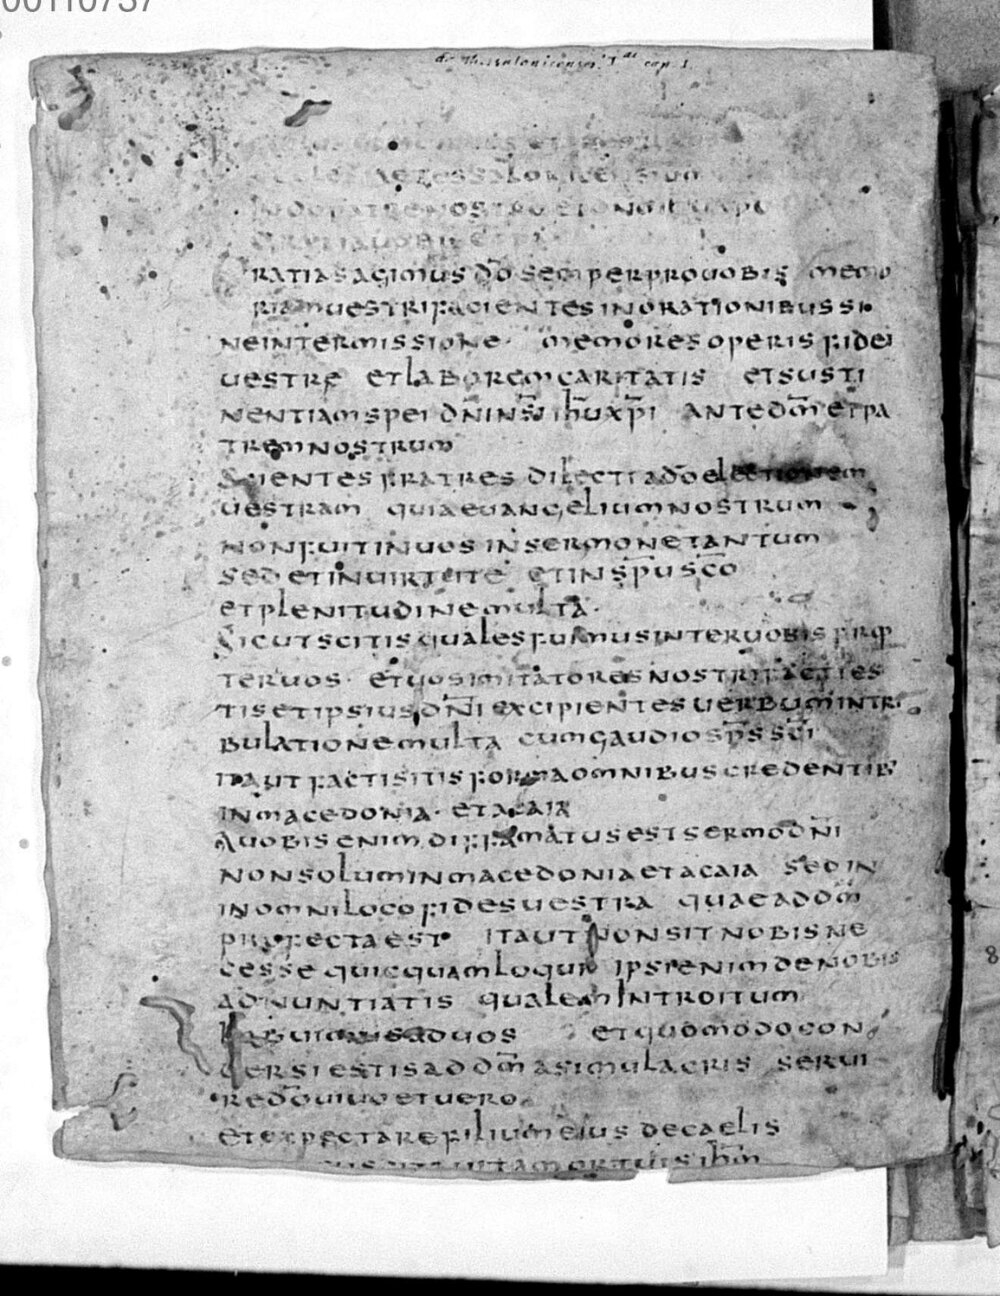 00110737
ad Thessalonicenses I cap. 1.
ecclesiae tessalonicensium
in do patre nostro et dno ihu xpo
gratia uobis et pax
Gratias agimus do semper pro uobis memo
riam uestri facientes in orationibus si
ne intermissione · memores operis fidei
uestre et laborem caritatis et susti
nentiam spei dni nsi ihu xpi ante dm et pa
trem nostrum
Scientes fratres dilecti a do electionem
uestram quia euangelium nostrum
non fuit in uos in sermone tantum
sed et in uirtute et in spu sco
et plenitudine multa ·
Sicut scitis quales fuimus inter uobis prop
ter uos · et uos imitatores nostri facti es
tis et ipsius dni excipientes uerbum in tri
bulatione multa cum gaudio sps sci
ita ut facti sitis forma omnibus credentib
in macedonia · et acaia
A uobis enim diffamatus est sermo dni
non solum in macedonia et acaia sed in
in omni loco fides uestra quae ad dm
profecta est · ita ut non sit nobis ne
cesse quicquam loqui ipsi enim de nobis
adnuntiatis qualem introitum
habuimus ad uos et quomodo con
uersi estis ad dm a simulacris serui
re do uiuo et uero ·
et expectare filium eius de caelis
mortuis ihm
8